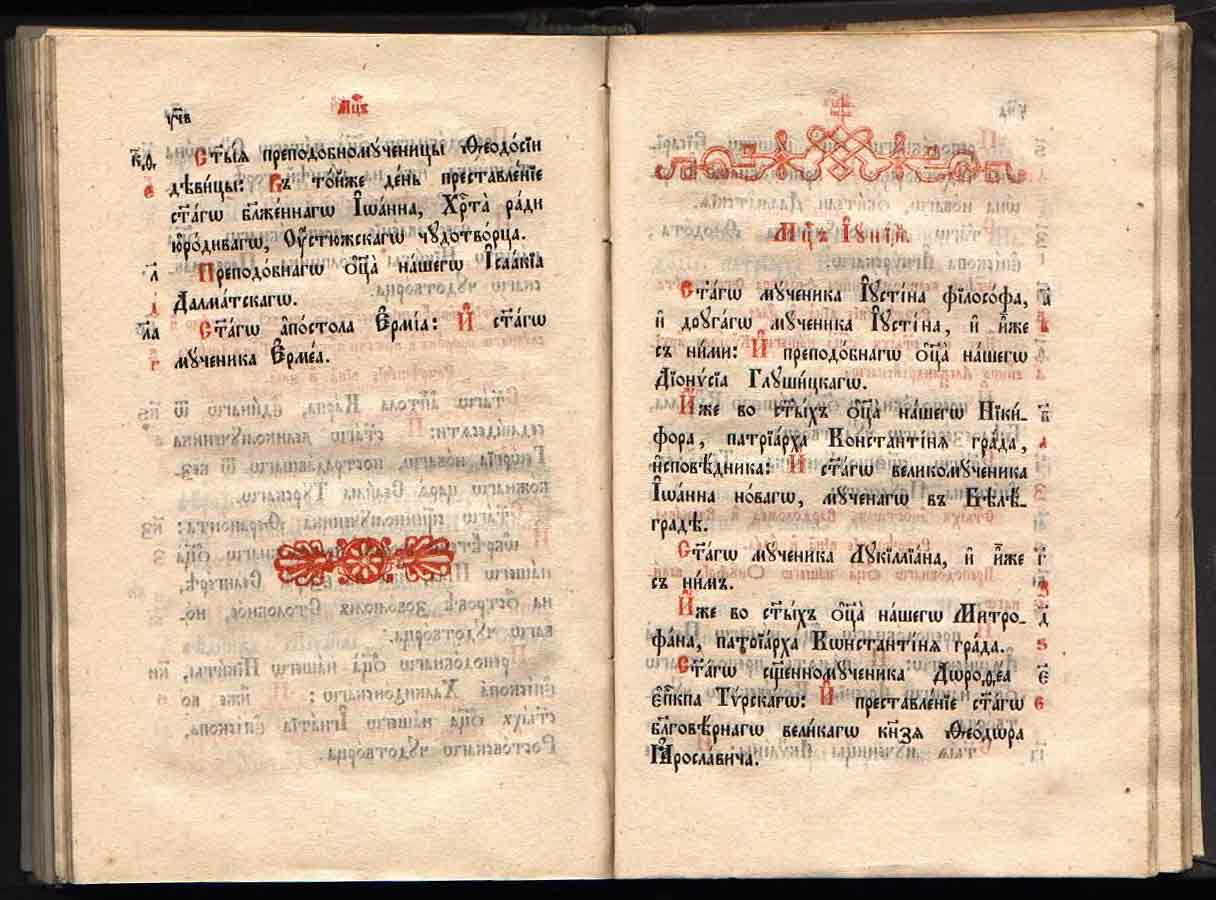 уч҃в
Мцⷭ҇ъ
к҃ѳ Ст҃ыѧ преподобномꙋченицы Ѳеодо́сїи
є дѣви́цы: Въ то́йже де́нь преставле́нїе
ст҃а́гѡ бл҃же́ннагѡ І҆ѡа́нна, Хрⷭ҇та̀ ра́ди
ю҆ро́дивагѡ, Оу҆́стюжскагѡ чꙋдотво́рца.
л҃ Преподо́бнагѡ ѻ҆ц҃а̀ на́шегѡ І҆саа́кїа
д Далма́тскагѡ.
л҃а Ст҃а́гѡ а҆по́стола Є҆рмі́а: И҆ ст҃а́гѡ
г мꙋченика Є҆рме́а.
Мцⷭ҇ъ І҆ꙋ́нїй.
Ст҃а́гѡ мꙋ́ченика І҆ꙋсті́на фїло́софа, а҃
и҆ дрꙋга́гѡ мꙋ́ченика І҆ꙋсті́на, и҆ и҆̀же
съ ни́ми: И҆ преподо́бнагѡ ѻ҆ц҃а̀ на́шегѡ
Дїонѵ́сїа Глꙋши́цкагѡ.
И҆́же во ст҃ы́хъ ѻ҆ц҃а̀ на́шегѡ Ники́- в҃
фора, патрїа́рха Константі́нѧ гра́да,
и҆сповѣ́дника: И҆ ст҃а́гѡ великомꙋ́ченика
І҆ѡа́нна но́вагѡ, мꙋ́ченагѡ въ Бѣлѣ́-
гра́дѣ.
Ст҃а́гѡ мꙋ́ченика Лꙋкїллїа́на, и҆ и҆̀же г҃
съ ни́мъ.
И҆́же во ст҃ы́хъ ѻ҆ц҃а̀ на́шегѡ Митро- д҃
фа́на, патрїа́рха Кѡнстанті́нѧ гра́да. ѕ
Ст҃а́гѡ сщ҃енномꙋ́ченика Дѡроѳе́а є҃
є҆пⷭ҇кпа Тѵ́рскагѡ: И҆ преставле́нїе ст҃а́гѡ
бл҃говѣ́рнагѡ вели́кагѡ кн҃зѧ Ѳео́дѡра
Ꙗ҆росла́вича.